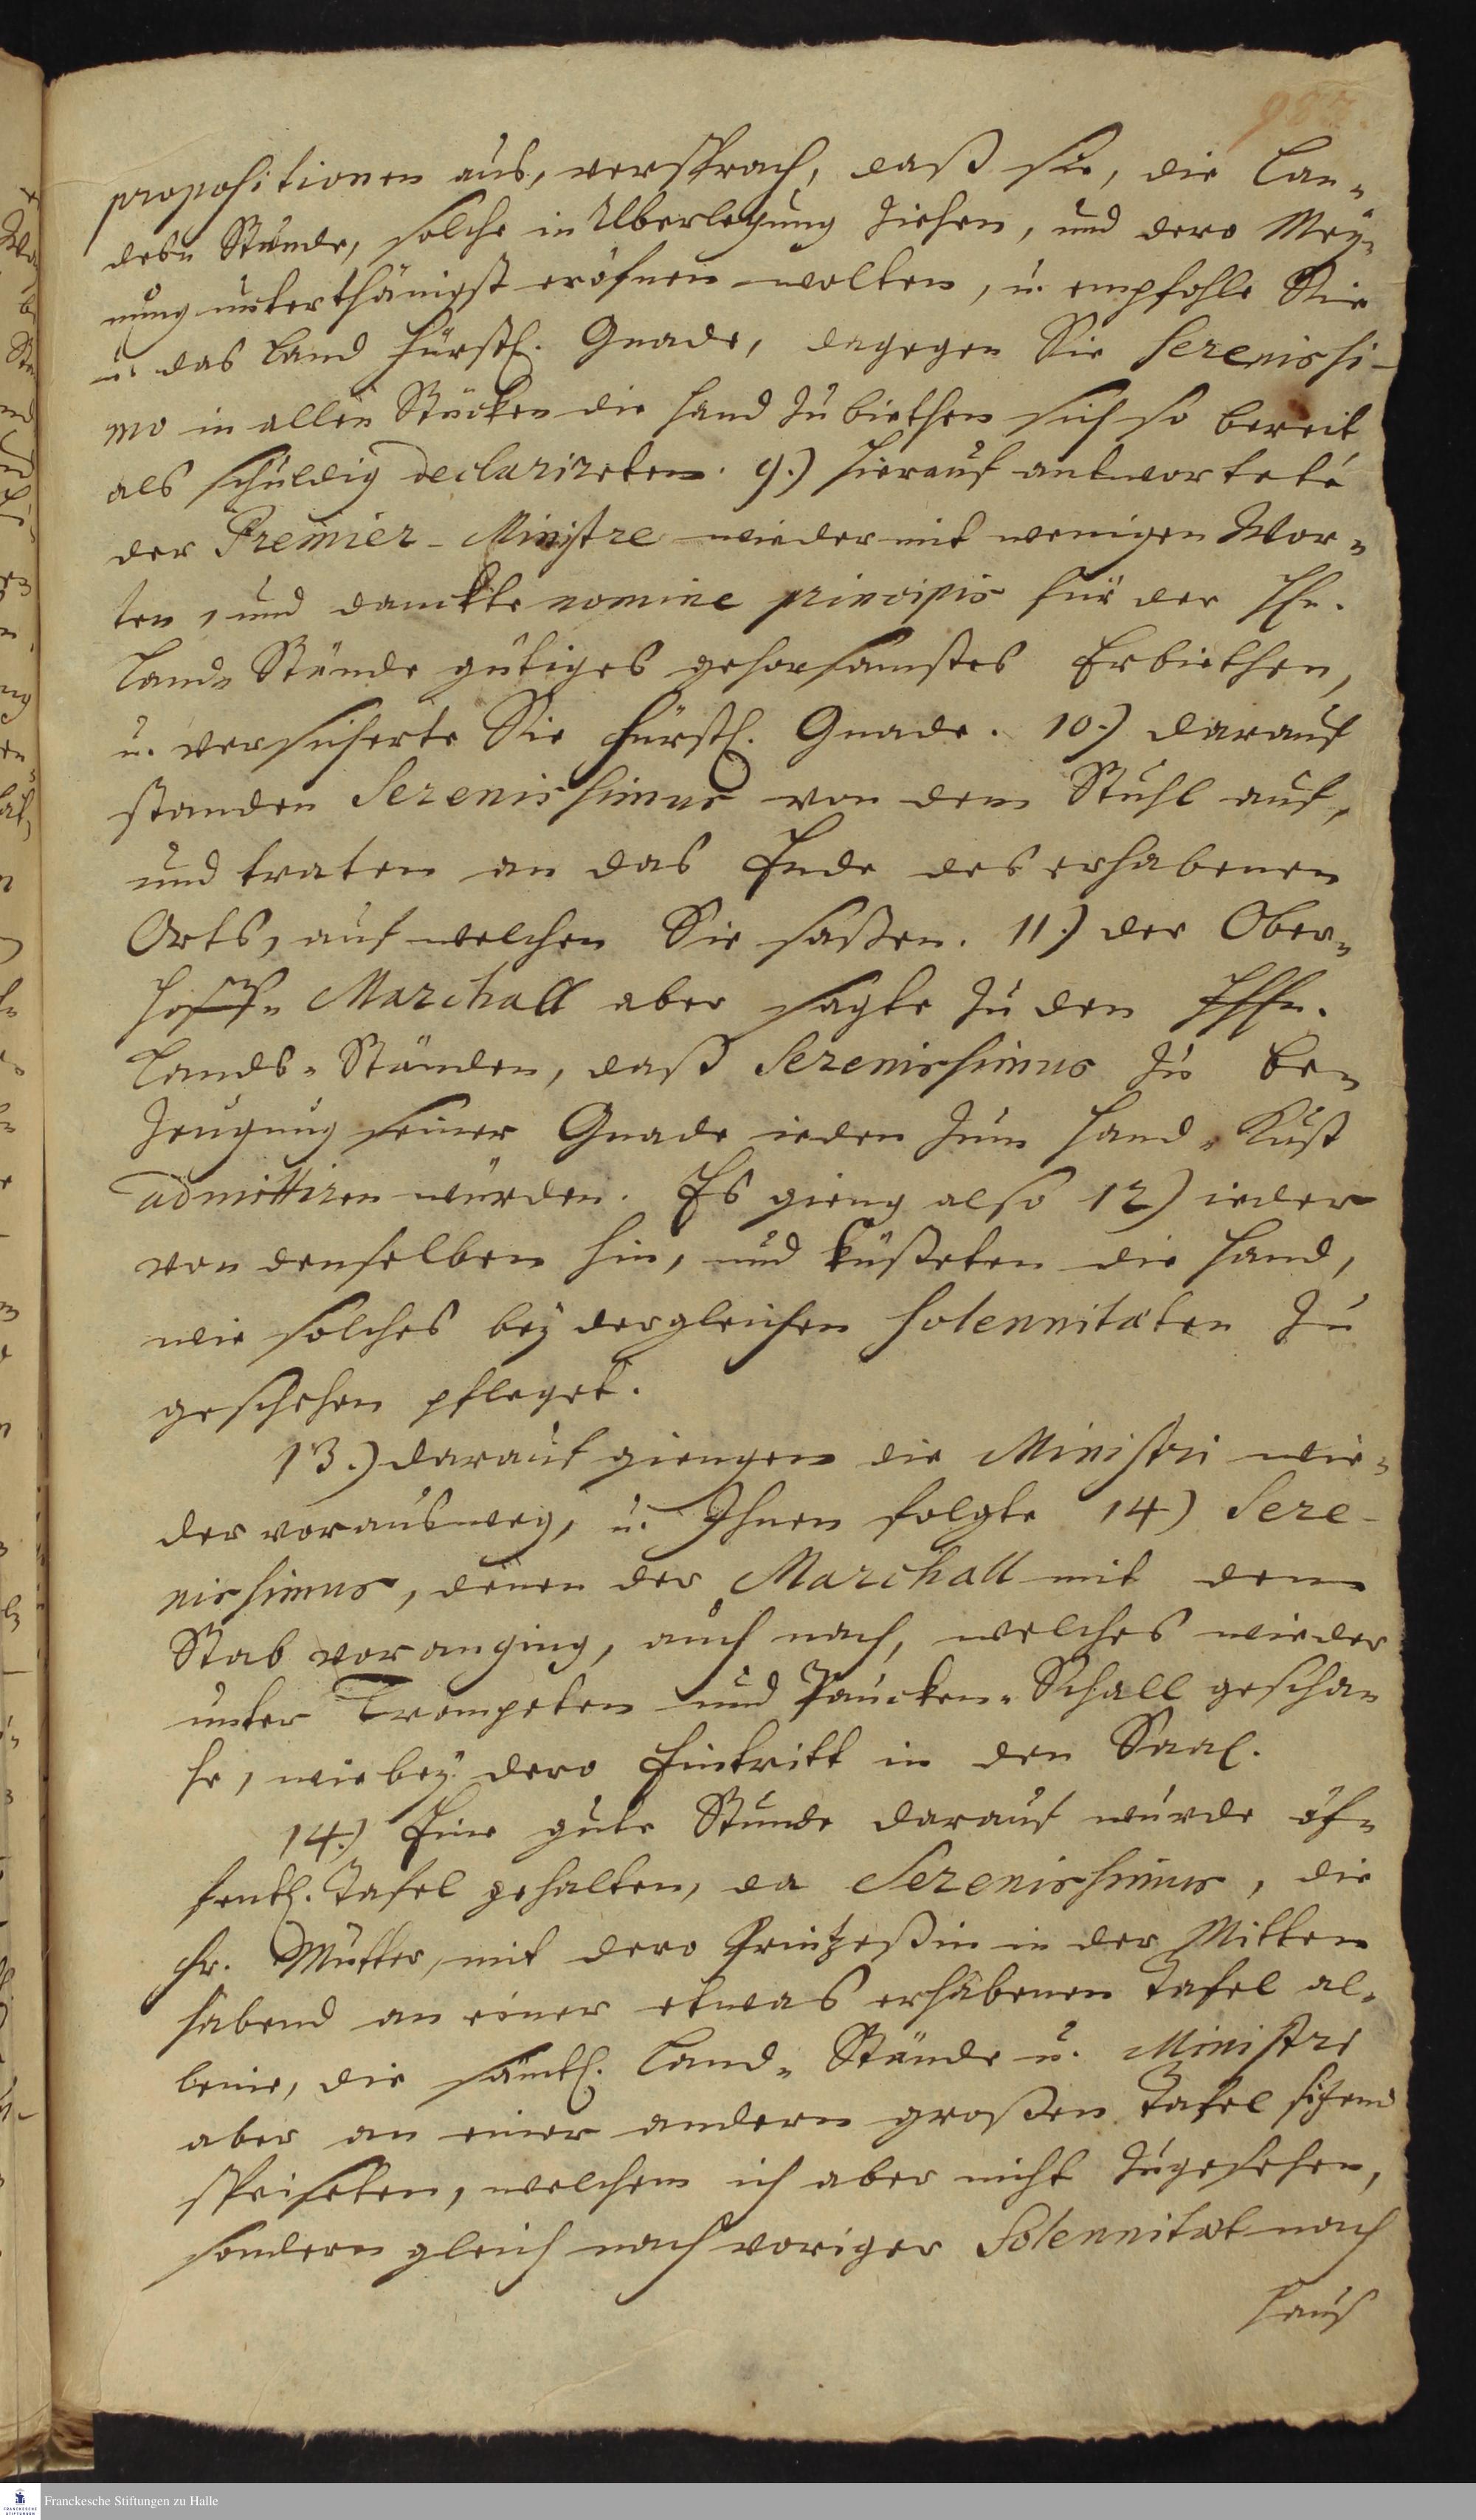 987.
propositionen aus, versprach, daß sie, die Lan-
des- Stände, solche in Überlegung ziehen, und dero Mey-
nung unterthänigst eröfnen wolten, u. empfohle Sie
u. das Land Fürstl. Gnade, dagegen Sie Serenissi-
mo in allen Stücken die Hand zu biethen sich so bereit
als schuldig declarireten. 9.) Hierauf antwortete
der Premier-Ministre wieder mit wenigen Wor-
ten, und danckte nomine principis für der Hn.
Land- Stände gütiges gehorsamstes Erbiethen,
u. versicherte Sie Fürstl. Gnade. 10.) darauf
standen Serenissimus von dem Stuhl auf,
und traten an das Ende des erhabenen
Orts, auf welchen Sie saßen. 11.) der Ober-
Hoff- Marchall aber sagte zu den Hhn.
Lands- Ständen, daß Serenissimus zu be-
zeugung seiner Gnade ieden zum Hand- Kuß
admittiren würden. Es gieng also 12) ieder
von denselben hin, und küßeten die Hand,
wie solches bey dergleichen Solennitæten zu
geschehen pfleget.
13.) darauf giengen die Ministri wie-
der vorausweg, u. Ihnen folgte 14) Sere-
nissimus, denen der Marchall mit dem
Stab voranging, auch nach, welches wieder
unter Trompeten und Paucken- Schall gescha-
he, wie bey dero Eintritt in den Saal.
14.) Eine gute Stunde darauf wurde öf-
fentl. Tafel gehalten, da Serenissimus, die
Fr. Mutter, mit dero Printzeßin in der Mitten
habend an einer etwas erhabenen Tafel al-
leine, die sämtl. Land- Stände u. Ministri
aber an einer andern großen Tafel sitzend
speiseten, welchem ich aber nicht zugesehen,
sondern gleich nach voriger Solennitæt nach
Hauß
Franckesche Stiftungen zu Halle